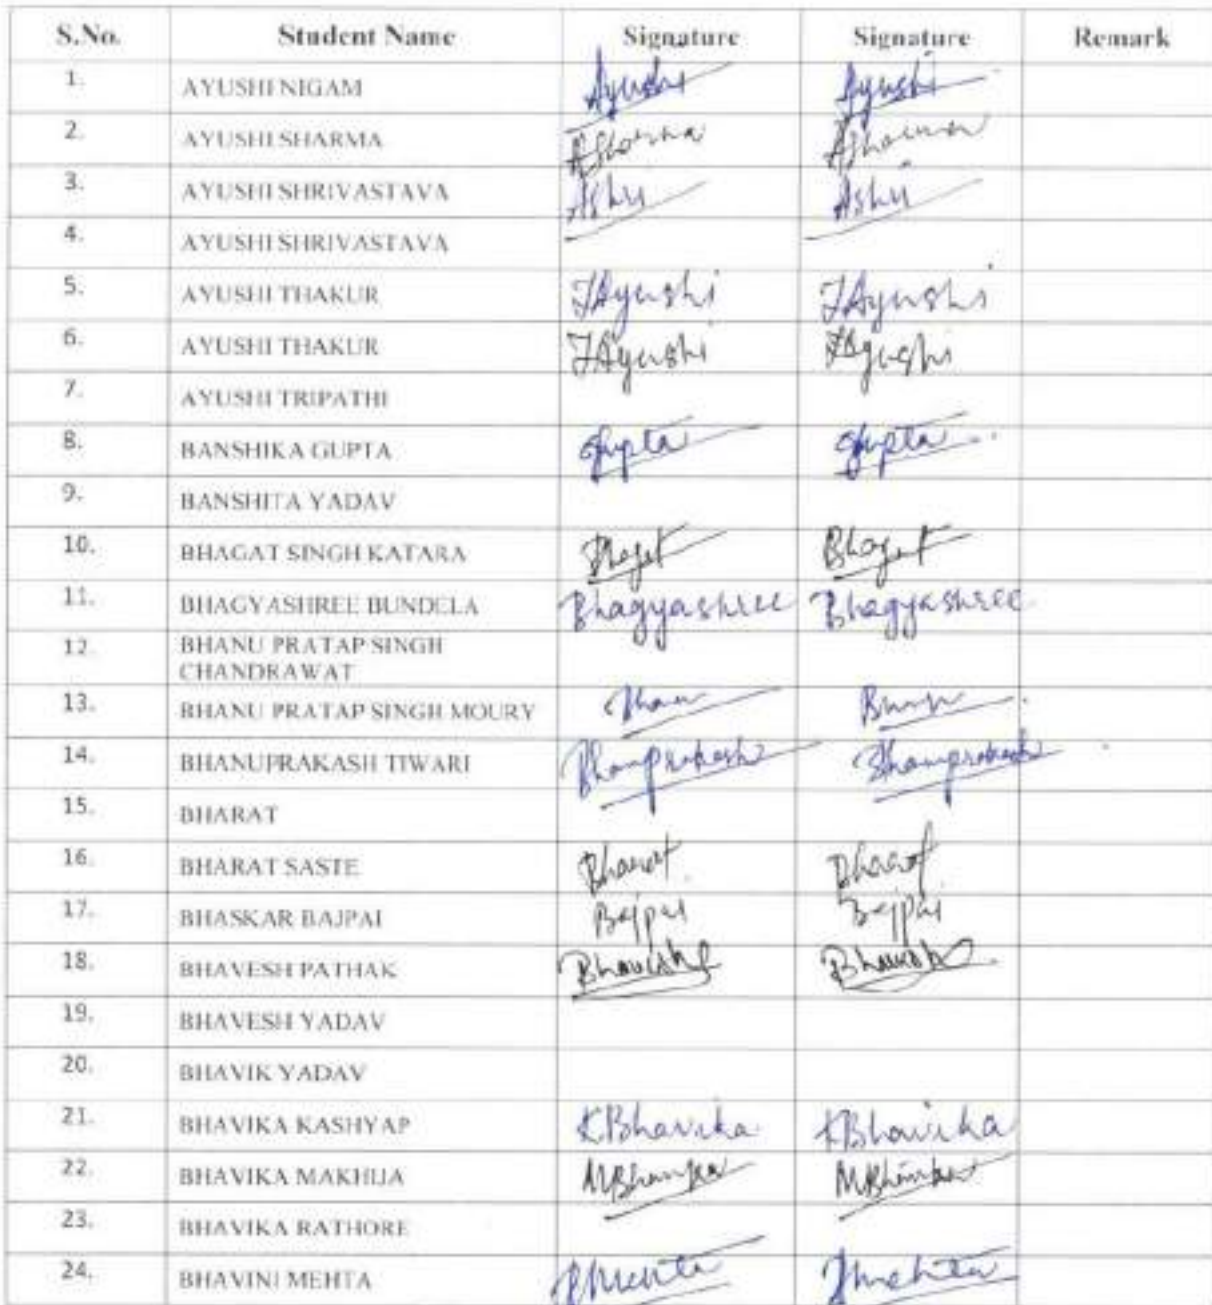 S.No. Student Name Signature Signature Remark
1. AYUSHI NIGAM Ayushi Ayushi
2. AYUSHI SHARMA ASharma ASharma
3. AYUSHI SHRIVASTAVA Ashri Ashri
4. AYUSHI SHRIVASTAVA
5. AYUSHI THAKUR TAyushi TAyushi
6. AYUSHI THAKUR TAyushi TAyushi
7. AYUSHI TRIPATHI
8. BANSHIKA GUPTA Gupta Gupta
9. BANSHITA YADAV
10. BHAGAT SINGH KATARA Bhagat Bhagat
11. BHAGYASHREE BUNDELA Bhagyashree Bhagyashree
12. BHANU PRATAP SINGH
CHANDRAWAT
13. BHANU PRATAP SINGH MOURY
14. BHANUPRAKASH TIWARI Bhanuprakash Bhanuprakash
15. BHARAT
16. BHARAT SASTE Bharat Bharat
17. BHASKAR BAJPAI Bajpai Bajpai
18. BHAVESH PATHAK Bhavesh Bhavesh
19. BHAVESH YADAV
20. BHAVIK YADAV
21. BHAVIKA KASHYAP KBhavika KBhavika
22. BHAVIKA MAKHIJA MBhavika MBhavika
23. BHAVIKA RATHORE
24. BHAVINI MEHTA BMehta Bmehta